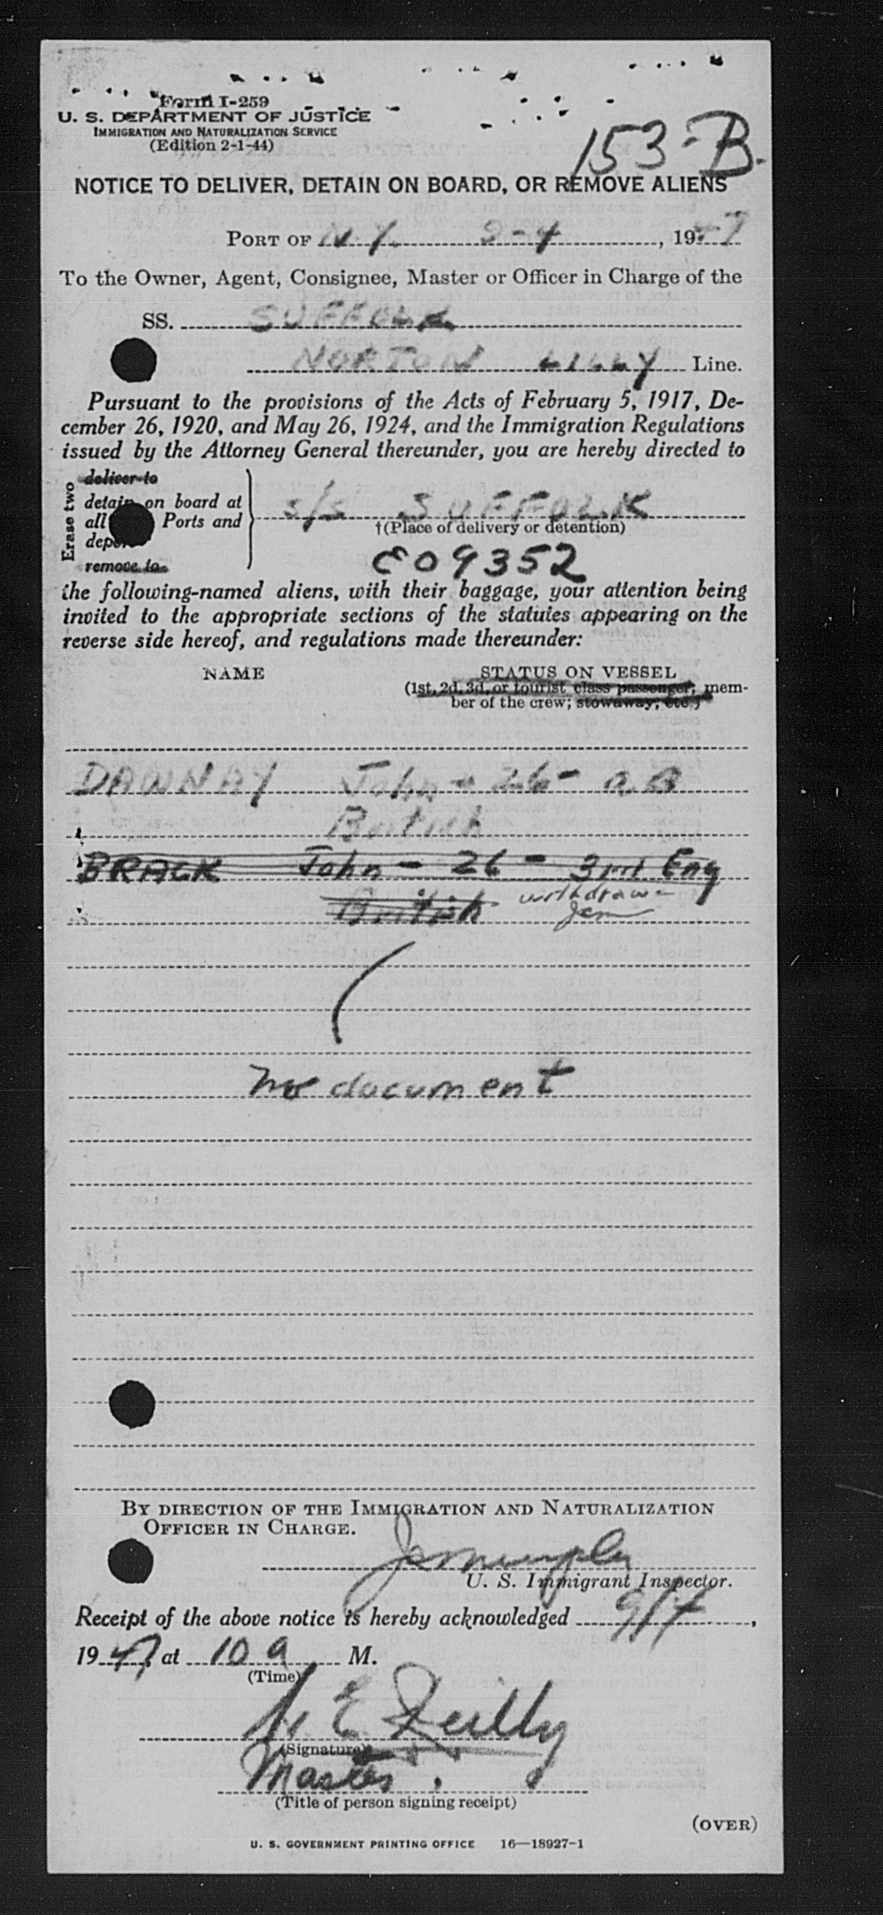 Form I-259
U. S. DEPARTMENT OF JUSTICE
IMMIGRATION AND NATURALIZATION SERVICE
(Edition 2-1-44)
153-B.
NOTICE TO DELIVER, DETAIN ON BOARD, OR REMOVE ALIENS
PORT OF N.Y. 9-4, 1947
To the Owner, Agent, Consignee, Master or Officer in Charge of the
SS. SUFFOLK
NORTON LILLY Line.
Pursuant to the provisions of the Acts of February 5, 1917, De-
cember 26, 1920, and May 26, 1924, and the Immigration Regulations
issued by the Attorney General thereunder, you are hereby directed to
Erase two
deliver to
detain on board at
all Ports and
remove to
s/s SUFFOLK
†(Place of delivery or detention)
E09352
the following-named aliens, with their baggage, your attention being
invited to the appropriate sections of the statutes appearing on the
reverse side hereof, and regulations made thereunder:
NAME STATUS ON VESSEL
(1st, 2d, 3d, or tourist class passenger; mem-
ber of the crew; stowaway; etc.)
DAWNAY John - 26 - A.B
British
BRACK John - 26 - 3rd Eng
British withdrawn
No document
BY DIRECTION OF THE IMMIGRATION AND NATURALIZATION
OFFICER IN CHARGE.
U. S. Immigrant Inspector.
Receipt of the above notice is hereby acknowledged 9/4,
1947 at 10 a M.
(Time)
E Reilly
(Signature)
Master
(Title of person signing receipt)
(OVER)
U. S. GOVERNMENT PRINTING OFFICE 16—18927-1